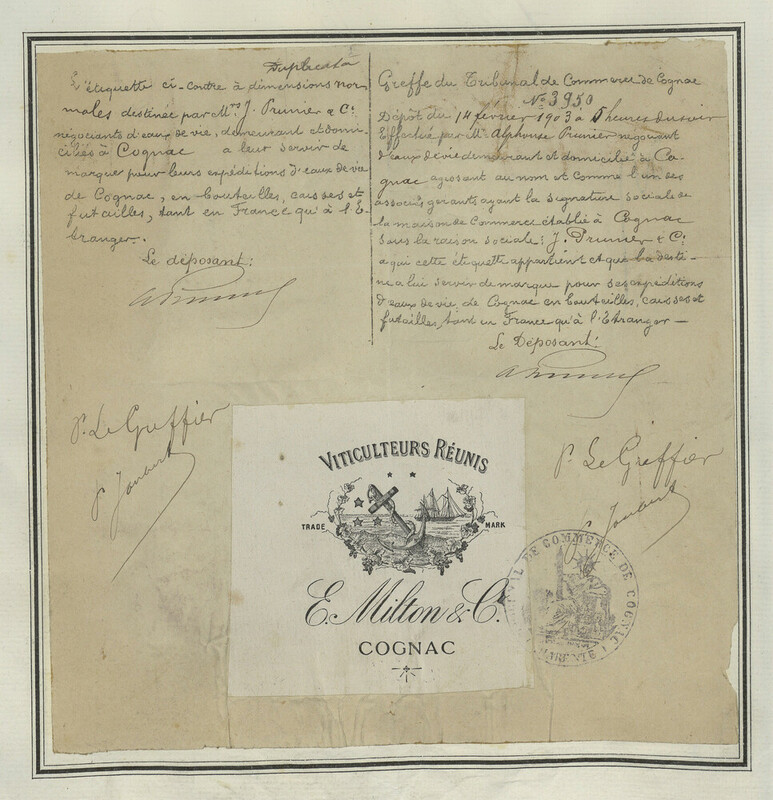 Duplicata
L'étiquette ci-contre à dimensions nor-
males destinée par Mrs J. Prunier & Cie
négociants d'eaux de vie, demeurant et domi-
ciliés à Cognac a leur servir de
marque pour leurs expéditions d'eaux de vie
de Cognac, en bouteilles, caisses et
futailles, tant en France qu'à l'E-
tranger.
Le déposant:
Greffe du Tribunal de Commerce de Cognac
No 3950
Dépôt du 14 février 1903 à 5 heures du soir
Effectué par Mr Alphonse Prunier négociant
d'eaux de vie demeurant et domicilié à Co-
gnac agissant au nom et comme l'un des
associés gérants ayant la signature sociale de
la maison de Commerce établie à Cognac
sous la raison sociale: J. Prunier & Cie
a qui cette étiquette appartient et que la desti-
ne a lui servir de marque pour ses expéditions
d'eaux de vie de Cognac en bouteilles, caisses et
futailles, tant en France qu'à l'Etranger —
Le Déposant:
P. Le Greffier
P. Le Greffier
VITICULTEURS RÉUNIS
TRADE MARK
E. Milton & Co.
COGNAC
TRIBUNAL DE COMMERCE DE COGNAC
CHARENTE